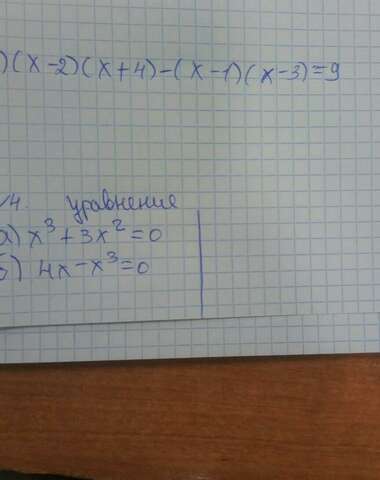 )(x-2)(x+4)-(x-1)(x-3)=9
√4. уравнение
а) x³+3x²=0
б) 4x-x³=0